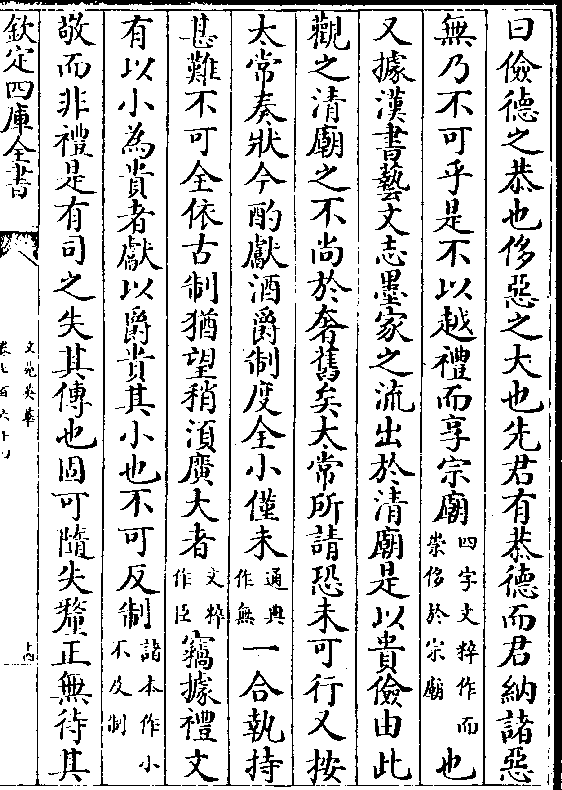 曰儉德之恭也侈惡之大也先君有恭德而君納諸惡
無乃不可乎是不以越禮而享宗廟四字文粹作而崇侈於宗廟也
又據漢書藝文志墨家之流出於清廟是以貴儉由此
觀之清廟之不尚於奢舊矣太常所請恐未可行又按
太常奏狀今酌獻酒爵制度全小僅未通典作無一合執持
甚難不可全依古制猶望稍湏廣大者文粹作臣竊據禮文
有以小為貴者獻以爵貴其小也不可反制諸本作小不及制
敬而非禮是有司之失其傳也固可隨失釐正無待其
欽定四庫全書
文苑英華